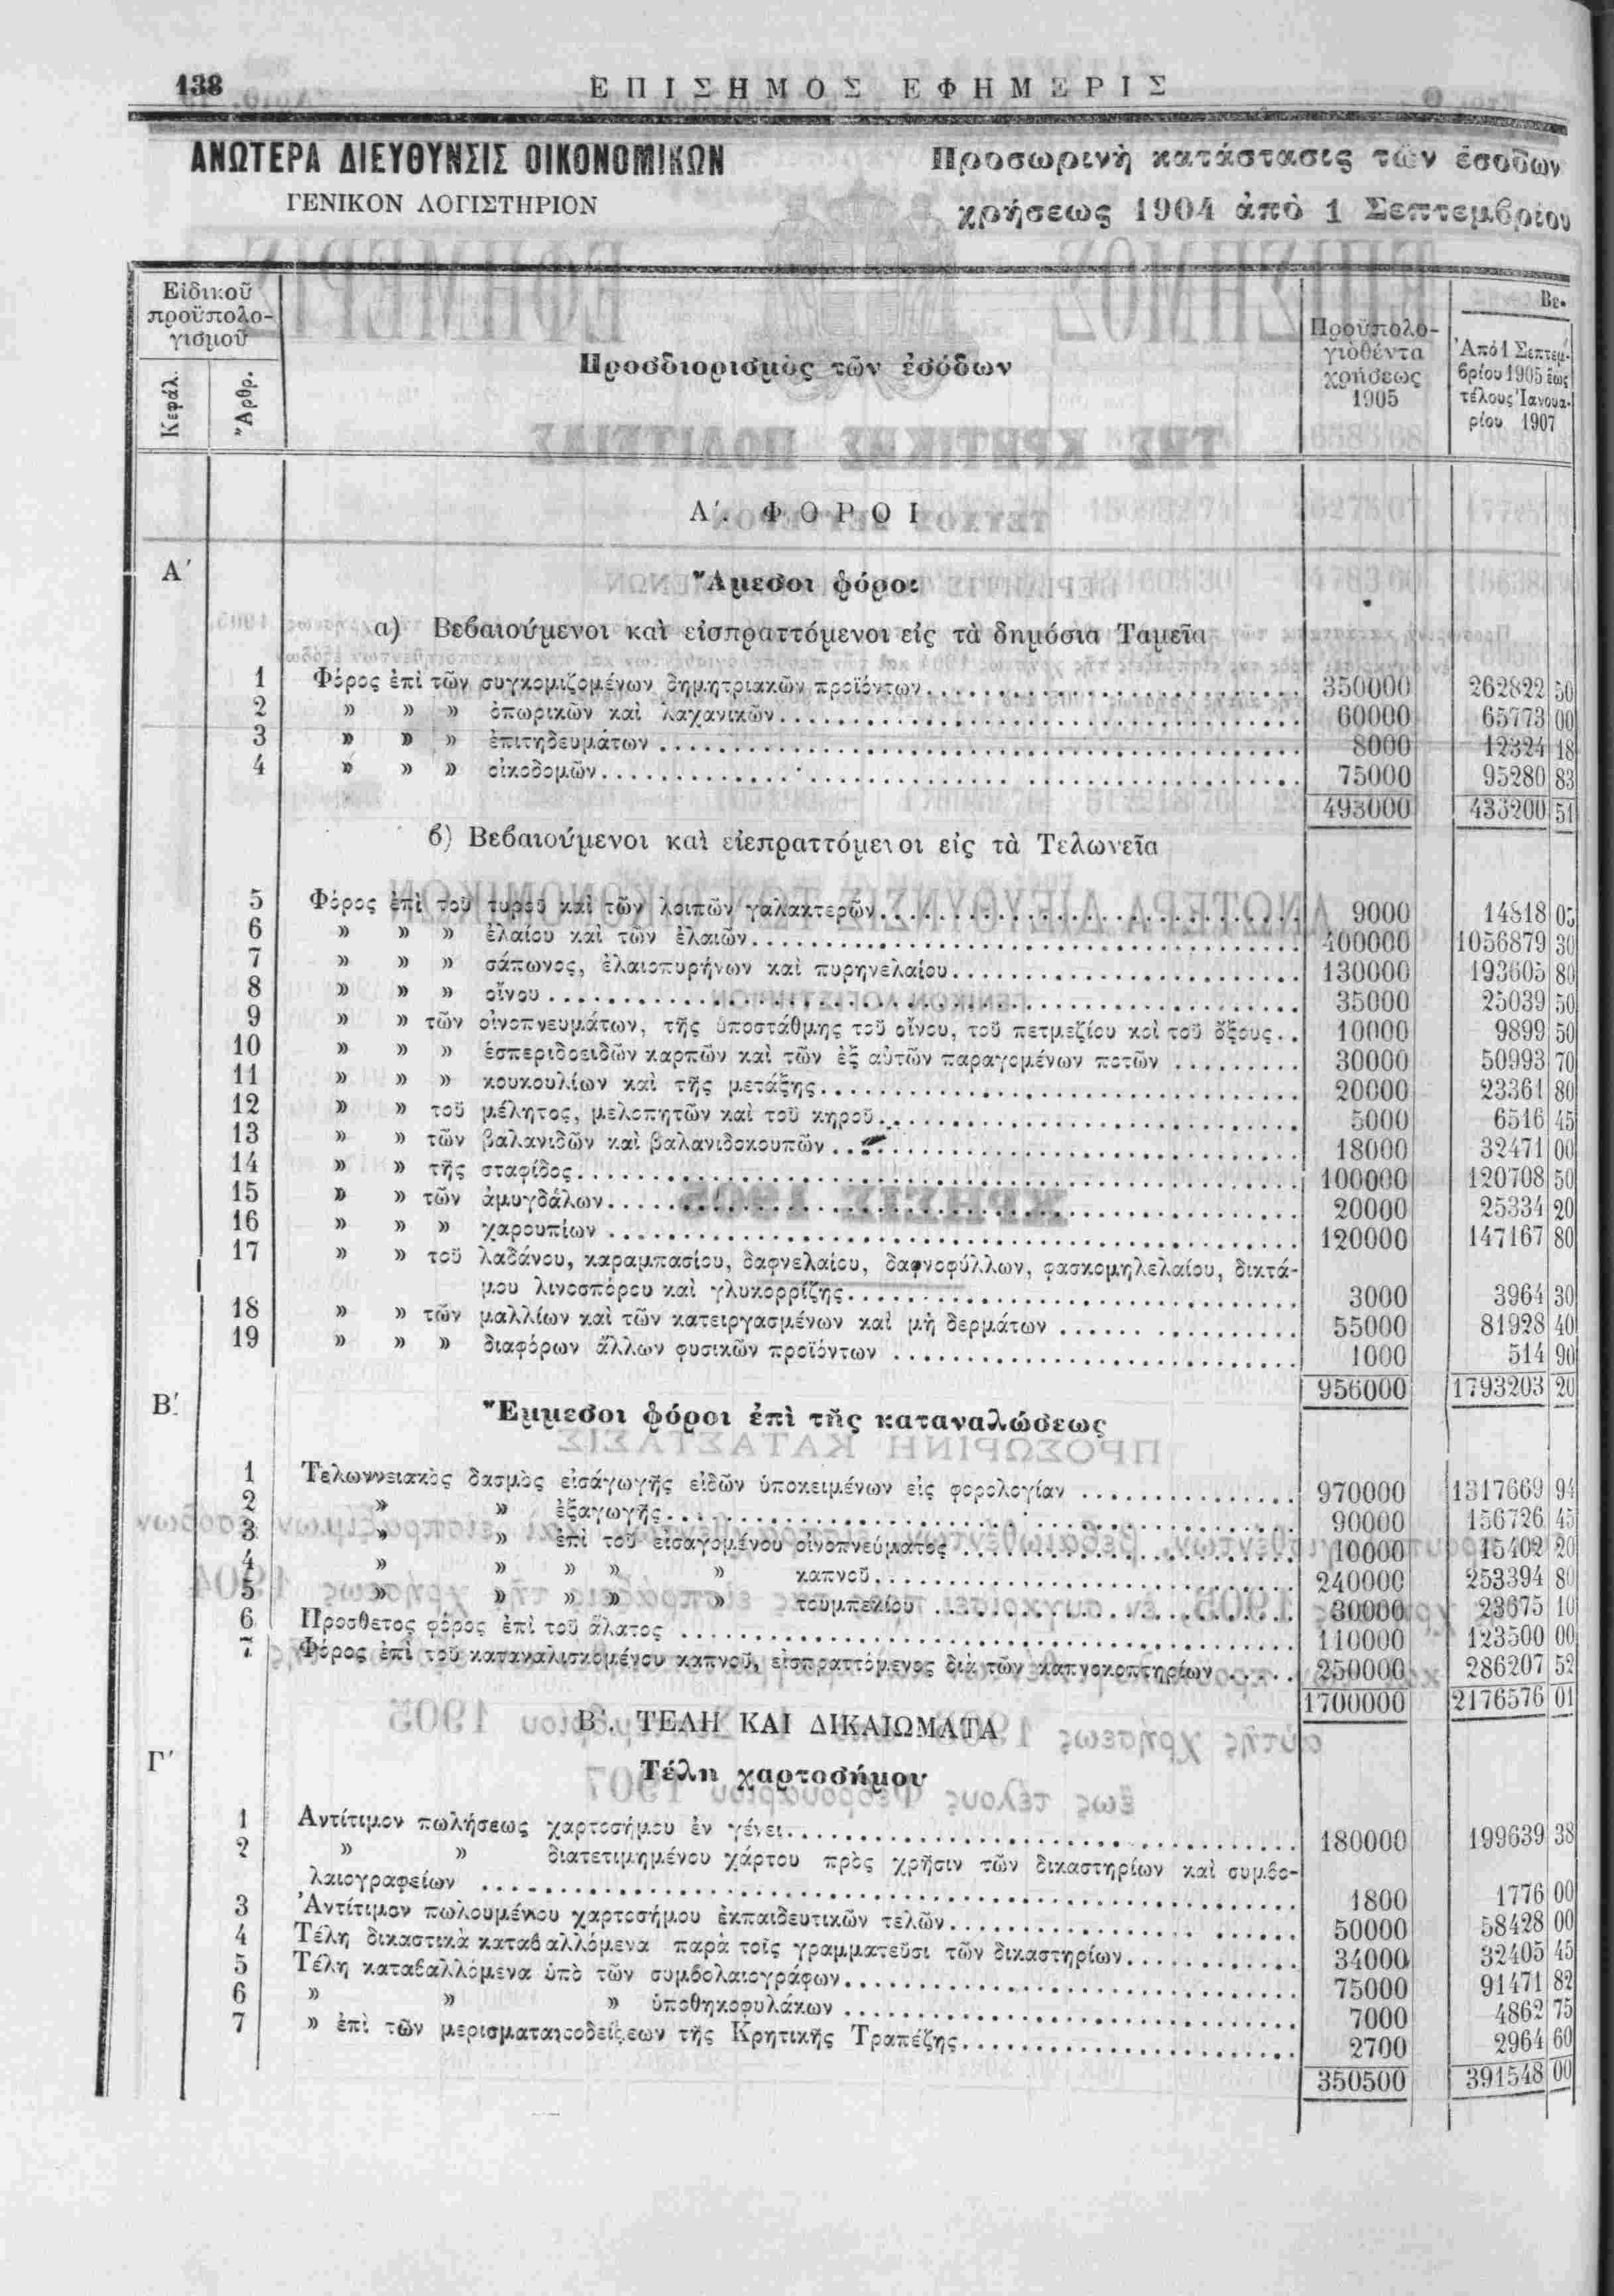 138
ΕΠΙΣΗΜΟΣ ΕΦΗΜΕΡΙΣ
ΑΝΩΤΕΡΑ ΔΙΕΥΘΥΝΣΙΣ ΟΙΚΟΝΟΜΙΚΩΝ
ΓΕΝΙΚΟΝ ΛΟΓΙΣΤΗΡΙΟΝ
Προσωρινὴ κατάστασις τῶν ἐσόδων
χρήσεως 1904 ἀπὸ 1 Σεπτεμβρίου
Εἰδικοῦ
προϋπολο-
γισμοῦ
Κεφάλ.
Ἄρθρ.
Προσδιορισμὸς τῶν ἐσόδων
Προϋπολο-
γιθέντα
χρήσεως
1905
Βε-
Ἀπὸ 1 Σεπτεμ-
βρίου 1905 ἕως
τέλους Ἰανουα-
ρίου 1907
Α΄. ΦΟΡΟΙ
Α΄
Ἄμεσοι φόροι
α) Βεβαιούμενοι καὶ εἰσπραττόμενοι εἰς τὰ δημόσια Ταμεῖα
1 Φόρος ἐπὶ τῶν συγκομιζομένων δημητριακῶν προϊόντων 350000 262822 50
2 » » » ὀπωρικῶν καὶ λαχανικῶν 60000 65773 00
3 » » » ἐπιτηδευμάτων 8000 12324 18
4 » » » οἰκοδομῶν 75000 95280 83
493000 433200 51
β) Βεβαιούμενοι καὶ εἰεπραττόμενοι εἰς τὰ Τελωνεῖα
5 Φόρος ἐπὶ τοῦ τυροῦ καὶ τῶν λοιπῶν γαλακτερῶν 9000 14818 05
6 » » » ἐλαίου καὶ τῶν ἐλαιῶν 400000 1056879 30
7 » » » σάπωνος, ἐλαιοπυρήνων καὶ πυρηνελαίου 130000 193605 80
8 » » » οἴνου 35000 25039 50
9 » » τῶν οἰνοπνευμάτων, τῆς ὑποστάθμης τοῦ οἴνου, τοῦ πετμεζίου κοὶ τοῦ ὄξους 10000 9899 50
10 » » » ἑσπεριδοειδῶν καρπῶν καὶ τῶν ἐξ αὐτῶν παραγομένων ποτῶν 30000 50993 70
11 » » » κουκουλίων καὶ τῆς μετάξης 20000 23361 80
12 » » τοῦ μέλητος, μελοπητῶν καὶ τοῦ κηροῦ 5000 6516 45
13 » » τῶν βαλανιδῶν καὶ βαλανιδοκουπῶν 18000 32471 00
14 » » τῆς σταφίδος 100000 120708 50
15 » » τῶν ἀμυγδάλων 20000 25334 20
16 » » » χαρουπίων 120000 147167 80
17 » » τοῦ λαδάνου, καραμπασίου, δαφνελαίου, δαφνοφύλλων, φασκομηλελαίου, δικτά-
μου λινοσπόρου καὶ γλυκορρίζης 3000 3964 30
18 » » τῶν μαλλίων καὶ τῶν κατειργασμένων καὶ μὴ δερμάτων 55000 81928 40
19 » » » διαφόρων ἄλλων φυσικῶν προϊόντων 1000 514 90
956000 1793203 20
Β΄.
Ἔμμεσοι φόροι ἐπὶ τῆς καταναλώσεως
1 Τελωννειακὸς δασμὸς εἰσάγωγῆς εἰδῶν ὑποκειμένων εἰς φορολογίαν 970000 1317669 94
2 » » ἐξαγωγῆς 90000 156726 45
3 » » ἐπὶ τοῦ εἰσαγομένου οἰνοπνεύματος 10000 15402 20
4 » » » » » καπνοῦ 240000 253394 80
5 » » » » » τουμπεκίου 30000 23675 10
6 Προσθετος φόρος ἐπὶ τοῦ ἅλατος 110000 123500 00
7 Φόρος ἐπὶ τοῦ καταναλισκομένου καπνοῦ, εἰσπραττόμενος διὰ τῶν καπνοκοπτηρίων 250000 286207 52
1700000 2176576 01
Β΄. ΤΕΛΗ ΚΑΙ ΔΙΚΑΙΩΜΑΤΑ
Γ΄
Τέλη χαρτοσήμου
1 Αντίτιμον πωλήσεως χαρτοσήμου ἐν γένει 180000 199639 38
2 » » διατετιμημένου χάρτου πρὸς χρῆσιν τῶν δικαστηρίων καὶ συμβο-
λαιογραφείων 1800 1776 00
3 Ἀντίτιμον πωλουμένου χαρτοσήμου ἐκπαιδευτικῶν τελῶν 50000 58428 00
4 Τέλη δικαστικὰ καταβαλλόμενα παρὰ τοῖς γραμματεῦσι τῶν δικαστηρίων 34000 32405 45
5 Τέλη καταβαλλόμενα ὑπὸ τῶν συμβολαιογράφων 75000 91471 82
6 » » » ὑποθηκοφυλάκων 7000 4862 75
7 » ἐπὶ τῶν μερισματαποδείξεων τῆς Κρητικῆς Τραπέζης 2700 2964 60
350500 391548 00